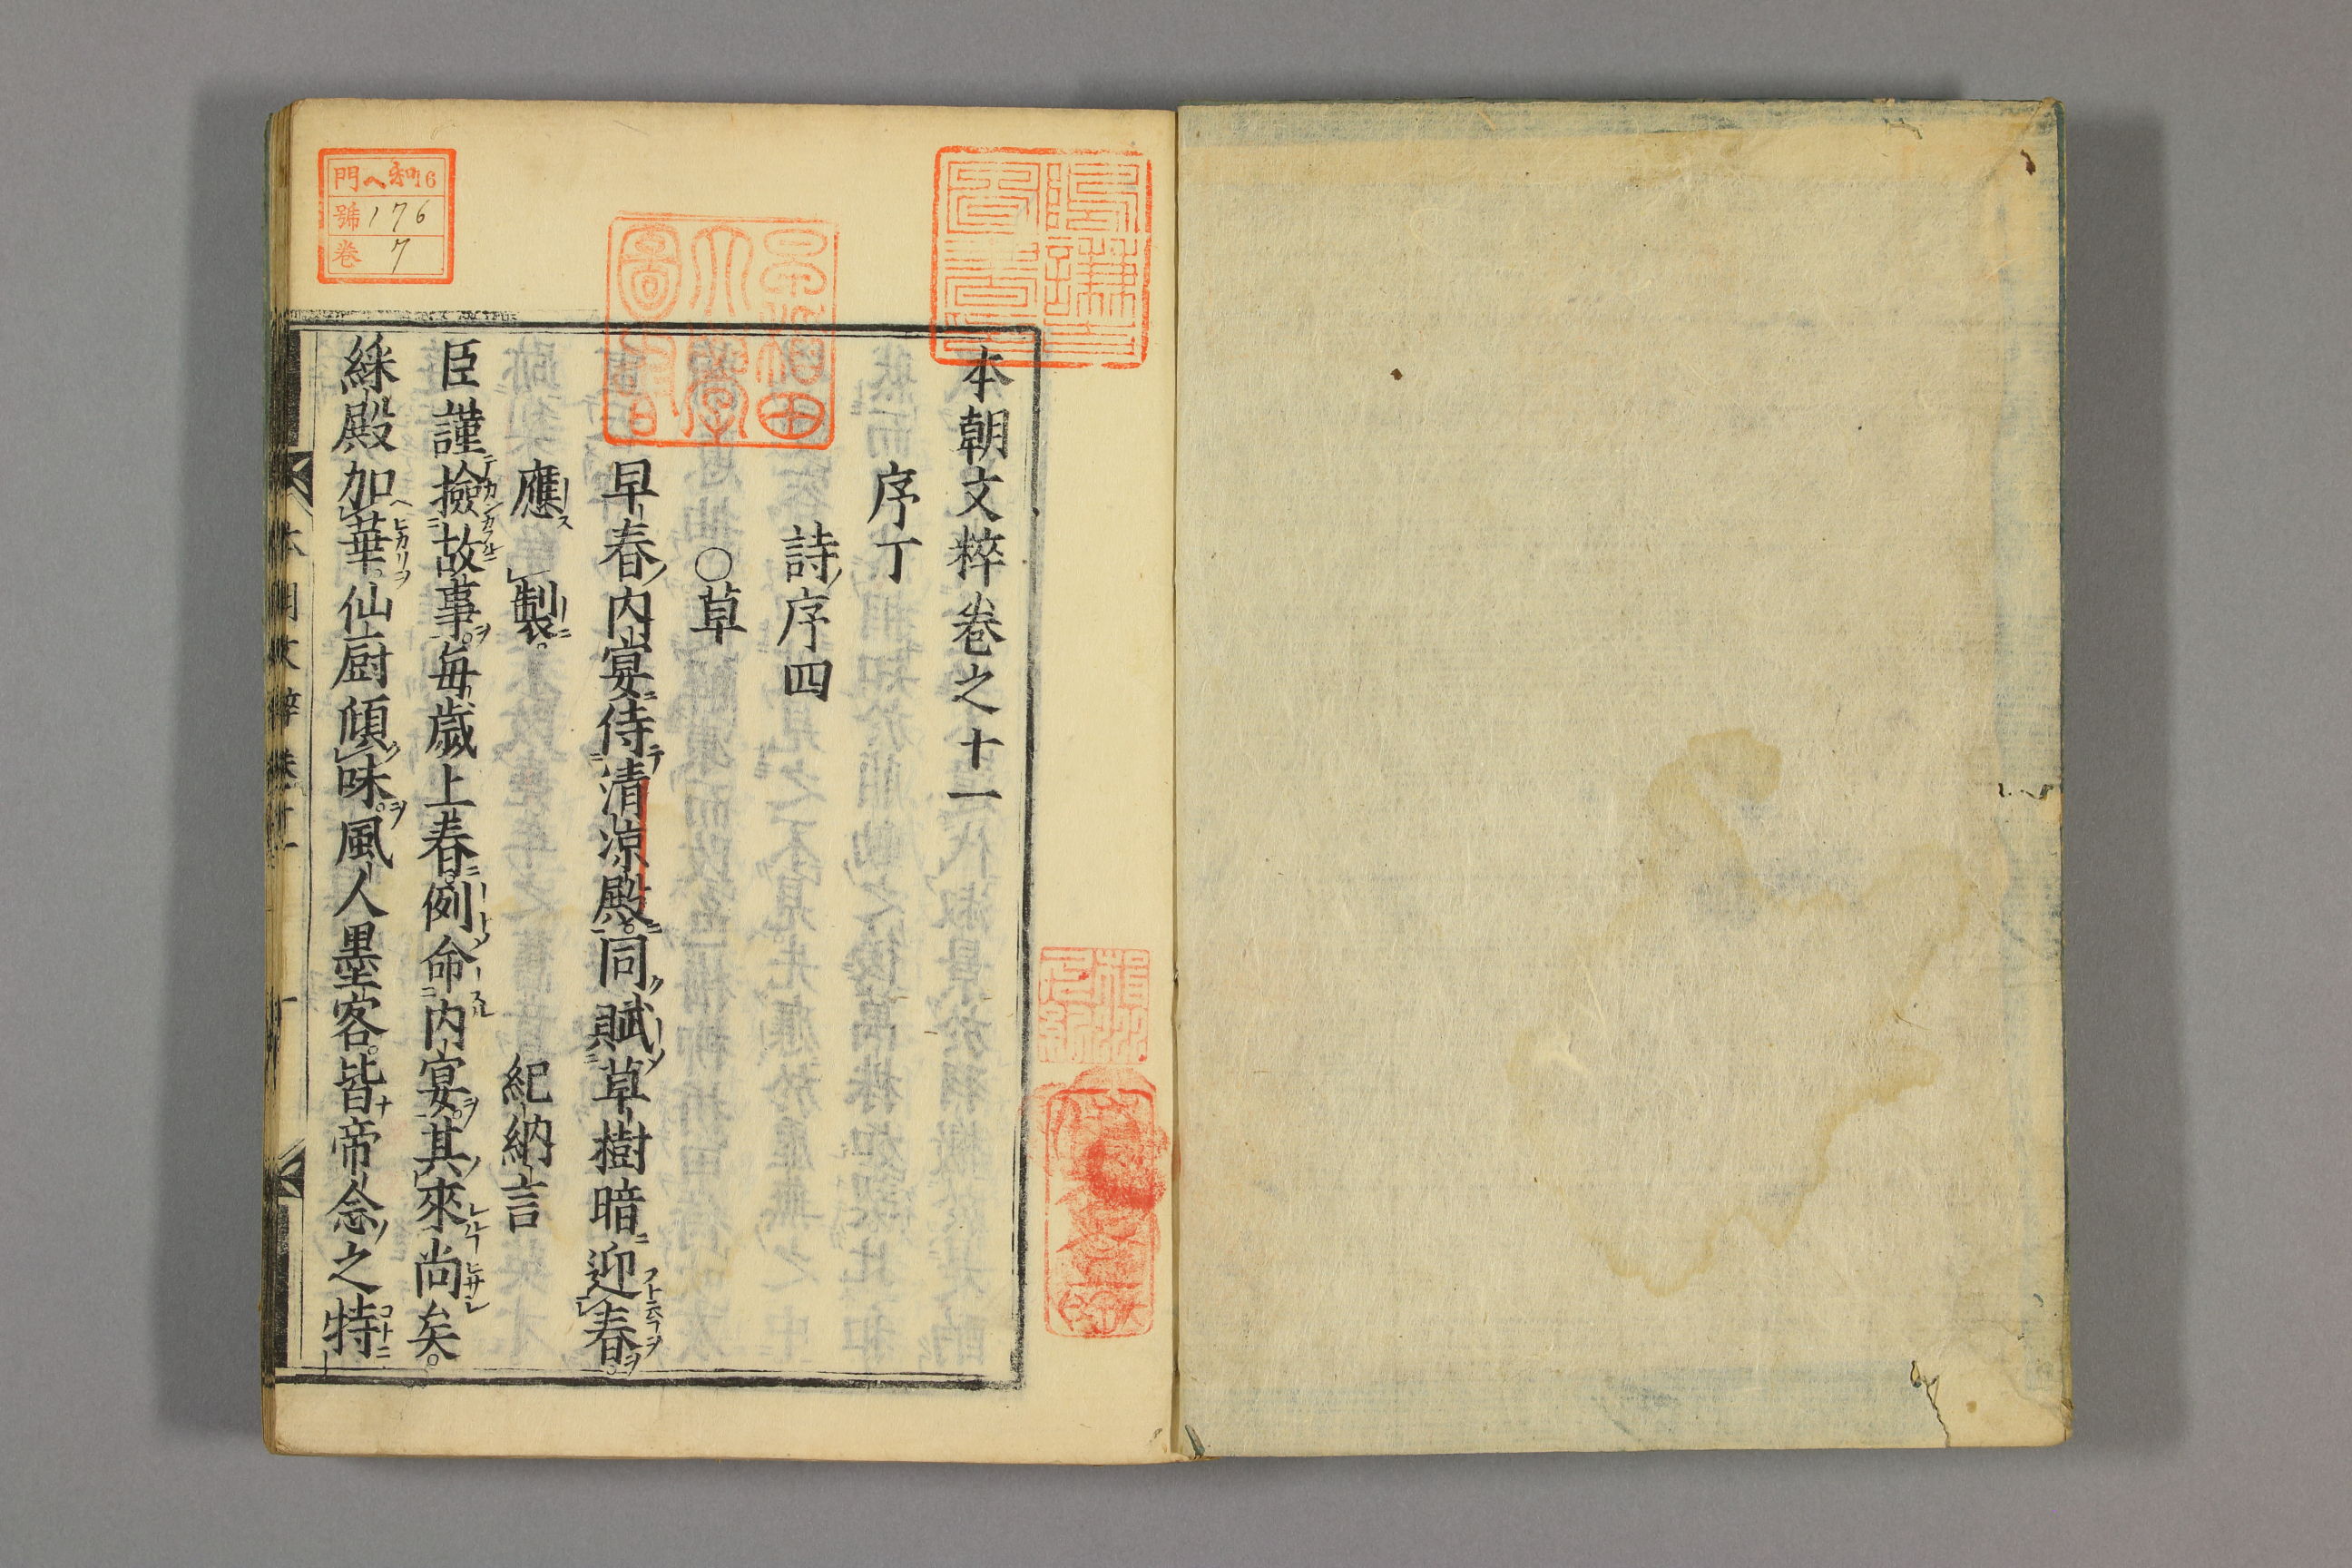 本朝文粹卷之十一
序丁
詩序四
○草
早春内宴侍清涼殿同賦草樹暗迎春
應製 紀納言
臣謹撿故事每歲上春例命内宴其來尚矣
綵殿加華仙厨傾味風人墨客皆帝念之特
門 ヘ和16
號 176
卷 7
早稲田大學圖書